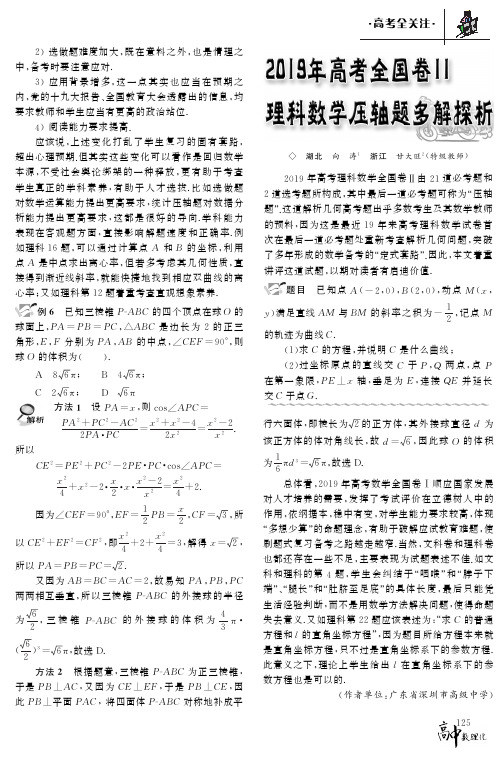 ·高考全关注·
2）选做题难度加大，既在意料之外，也是情理之
中，备考时要注意应对．
3）应用背景增多，这一点其实也应当在预期之
内，党的十九大报告、全国教育大会透露出的信息，均
要求教师和学生应当有更高的政治站位．
4）阅读能力要求提高．
应该说，上述变化打乱了学生复习的固有套路，
超出心理预期．但其实这些变化可以看作是回归数学
本源，不受社会舆论绑架的一种释放，更有助于考查
学生真正的学科素养，有助于人才选拔．比如选做题
对数学运算能力提出更高要求，统计压轴题对数据分
析能力提出更高要求，这都是很好的导向．学科能力
表现在客观题方面，直接影响解题速度和正确率．例
如理科16题，可以通过计算点 A 和 B 的坐标，利用
点 A 是中点求出离心率，但若多考虑其几何性质，直
接得到渐近线斜率，就能快捷地找到相应双曲线的离
心率；又如理科12题着重考查直观想象素养．
例6 已知三棱锥 P-ABC 的四个顶点在球 O 的
球面上，PA＝PB＝PC，△ABC 是边长为2的正三
角形，E，F 分别为 PA，AB 的中点，∠CEF＝90°，则
球 O 的体积为( )．
A 8√6π； B 4√6π；
C 2√6π； D √6π
解析
方法1 设 PA＝x，则 cos∠APC＝
(PA²＋PC²－AC²)/(2PA·PC)＝(x²＋x²－4)/(2x²)＝(x²－2)/x²．
所以
CE²＝PE²＋PC²－2PE·PC·cos∠APC＝
x²/4＋x²－2·x/2·x·(x²－2)/x²＝x²/4＋2．
因为∠CEF＝90°，EF＝1/2 PB＝x/2，CF＝√3，所
以 CE²＋EF²＝CF²，即 x²/4＋2＋x²/4＝3，解得 x＝√2，
所以 PA＝PB＝PC＝√2．
又因为 AB＝BC＝AC＝2，故易知 PA，PB，PC
两两相互垂直，所以三棱锥 P-ABC 的外接球的半径
为 √6/2，三棱锥 P-ABC 的外接球的体积为 4/3 π·
(√6/2)³＝√6π，故选 D．
方法2 根据题意，三棱锥 P-ABC 为正三棱锥，
于是 PB⊥AC，又因为 CE⊥EF，于是 PB⊥CE，因
此 PB⊥平面 PAC，将四面体 P-ABC 对称地补成平
2019年高考全国卷II
理科数学压轴题多解探析
◇ 湖北 向 涛¹ 浙江 甘大旺²(特级教师)
2019年高考理科数学全国卷Ⅱ由21道必考题和
2道选考题所构成，其中最后一道必考题可称为“压轴
题”．这道解析几何高考题出乎多数考生及其数学教师
的预料，因为这是最近19年来高考理科数学试卷首
次在最后一道必考题处重新考查解析几何问题，突破
了多年形成的数学备考的“定式套路”．因此，本文着重
讲评这道试题，以期对读者有启迪价值．
题目 已知点 A(－2，0)，B(2，0)，动点 M(x，
y)满足直线 AM 与 BM 的斜率之积为－1/2，记点 M
的轨迹为曲线 C．
(1)求 C 的方程，并说明 C 是什么曲线；
(2)过坐标原点的直线交 C 于 P，Q 两点，点 P
在第一象限，PE⊥x 轴，垂足为 E，连接 QE 并延长
交 C 于点 G．
行六面体，即棱长为√2的正方体，其外接球直径 d 为
该正方体的体对角线长，故 d＝√6，因此球 O 的体积
为 1/6 πd³＝√6π，故选 D．
总体看，2019年高考数学全国卷Ⅰ顺应国家发展
对人才培养的需要，发挥了考试评价在立德树人中的
作用，依纲据本，稳中有变，对学生能力要求较高，体现
“多想少算”的命题理念，有助于破解应试教育难题，使
刷题式复习备考之路越走越窄．当然，文科卷和理科卷
也都还存在一些不足，主要表现为试题表述不佳．如文
科和理科的第4题，学生会纠结于“咽喉”和“脖子下
端”、“腿长”和“肚脐至足底”的具体长度，最后只能凭
生活经验判断，而不是用数学方法解决问题，使得命题
失去意义．又如理科第22题应该表述为：“求 C 的普通
方程和 l 的直角坐标方程”，因为题目所给方程本来就
是直角坐标方程，只不过是直角坐标系下的参数方程．
此意义之下，理论上学生给出 l 在直角坐标系下的参
数方程也是可以的．
(作者单位：广东省深圳市高级中学)
125
高中数理化